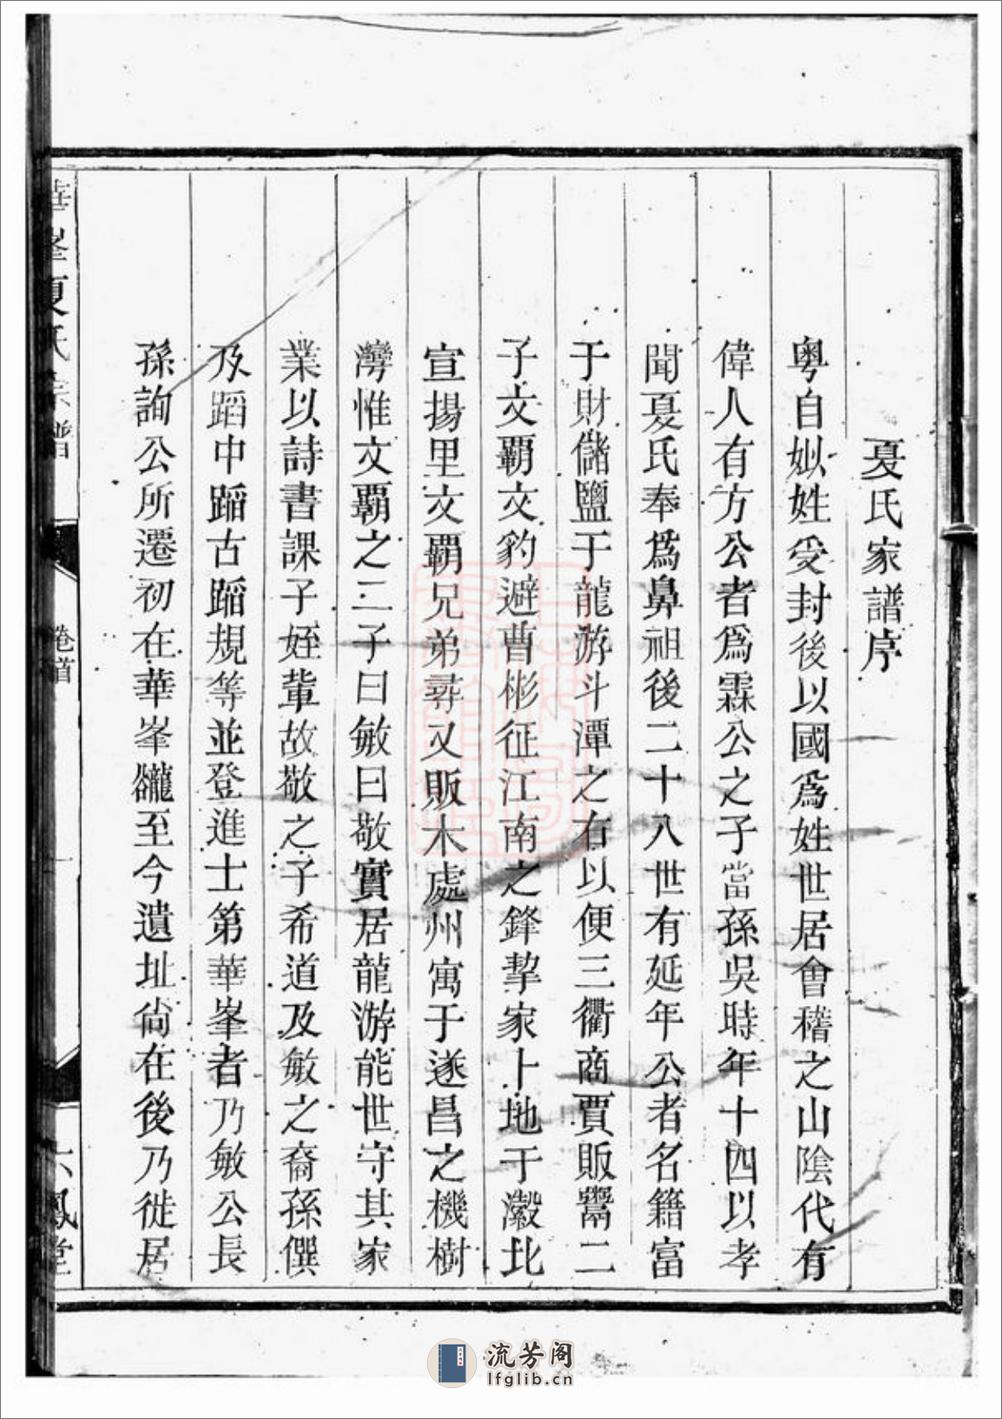 夏氏家譜序
粤自姒姓受封後以國爲姓世居會稽之山陰代有
偉人有方公者爲霖公之子當孫吳時年十四以孝
聞夏氏奉爲鼻祖後二十八世有延年公者名籍富
于財儲鹽于龍游斗潭之右以便三衢商賈販鬻二
子文覇文豹避曹彬征江南之鋒挈家卜地于瀫北
宣揚里文覇兄弟尋又販木處州寓于遂昌之機樹
灣惟文覇之二子曰敏曰敬實居龍游能世守其家
業以詩書課子姪軰故敬之子希道及敏之裔孫僎
及蹈中蹈古蹈規等並登進士第華峯者乃敏公長
孫詢公所遷初在華峯巃至今遺址尙在後乃徙居
華峯夏氏宗譜
卷首
一
六鳳堂
流芳阁
lfglib.cn